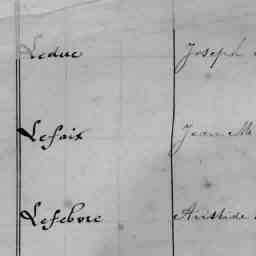 Leduc Joseph
Lefaix Jean M
Lefebvre Aristide